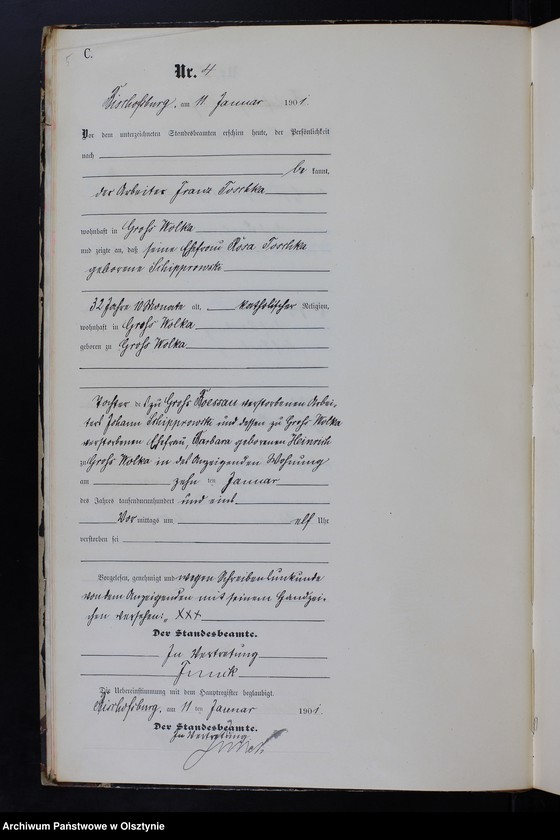 C.
Nr. 4
Bischofsburg, am 11 Januar 1901.
Vor dem unterzeichneten Standesbeamten erschien heute, der Persönlichkeit
nach
be kannt,
der Arbeiter Franz
wohnhaft in Groß Wolka
und zeigte an, daß seine Ehefrau Rosa
geborene Schipprowski
32 Jahre 10 Monate alt, katholischer Religion,
wohnhaft in Groß Wolka
geboren zu Groß Wolka
Tochter des zu Groß verstorbenen Arbei-
ters Johann Schipprowski und dessen zu Groß Wolka
verstorbenen Ehefrau, Barbara geborenen Heinrich
zu Groß Wolka in des Anzeigenden Wohnung
am zehn ten Januar
des Jahres tausendneunhundert und eins
Vor mittags um elf Uhr
verstorben sei
Vorgelesen, genehmigt und wegen Schreibensunkunde
von dem Anzeigenden mit seinem Handzei-
chen versehen: XXX
Der Standesbeamte.
In Vertretung
Die Uebereinstimmung mit dem Hauptregister beglaubigt.
Bischofsburg, am 11 ten Januar 1901.
Der Standesbeamte.
In Vertretung
Archiwum Państwowe w Olsztynie